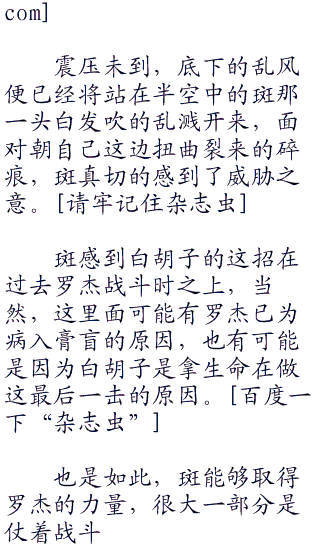 com]
震压未到，底下的乱风
便已经将站在半空中的斑那
一头白发吹的乱溅开来，面
对朝自己这边扭曲裂来的碎
痕，斑真切的感到了威胁之
意。[请牢记住杂志虫]
斑感到白胡子的这招在
过去罗杰战斗时之上，当
然，这里面可能有罗杰已为
病入膏盲的原因，也有可能
是因为白胡子是拿生命在做
这最后一击的原因。[百度一
下“杂志虫”]
也是如此，斑能够取得
罗杰的力量，很大一部分是
仗着战斗